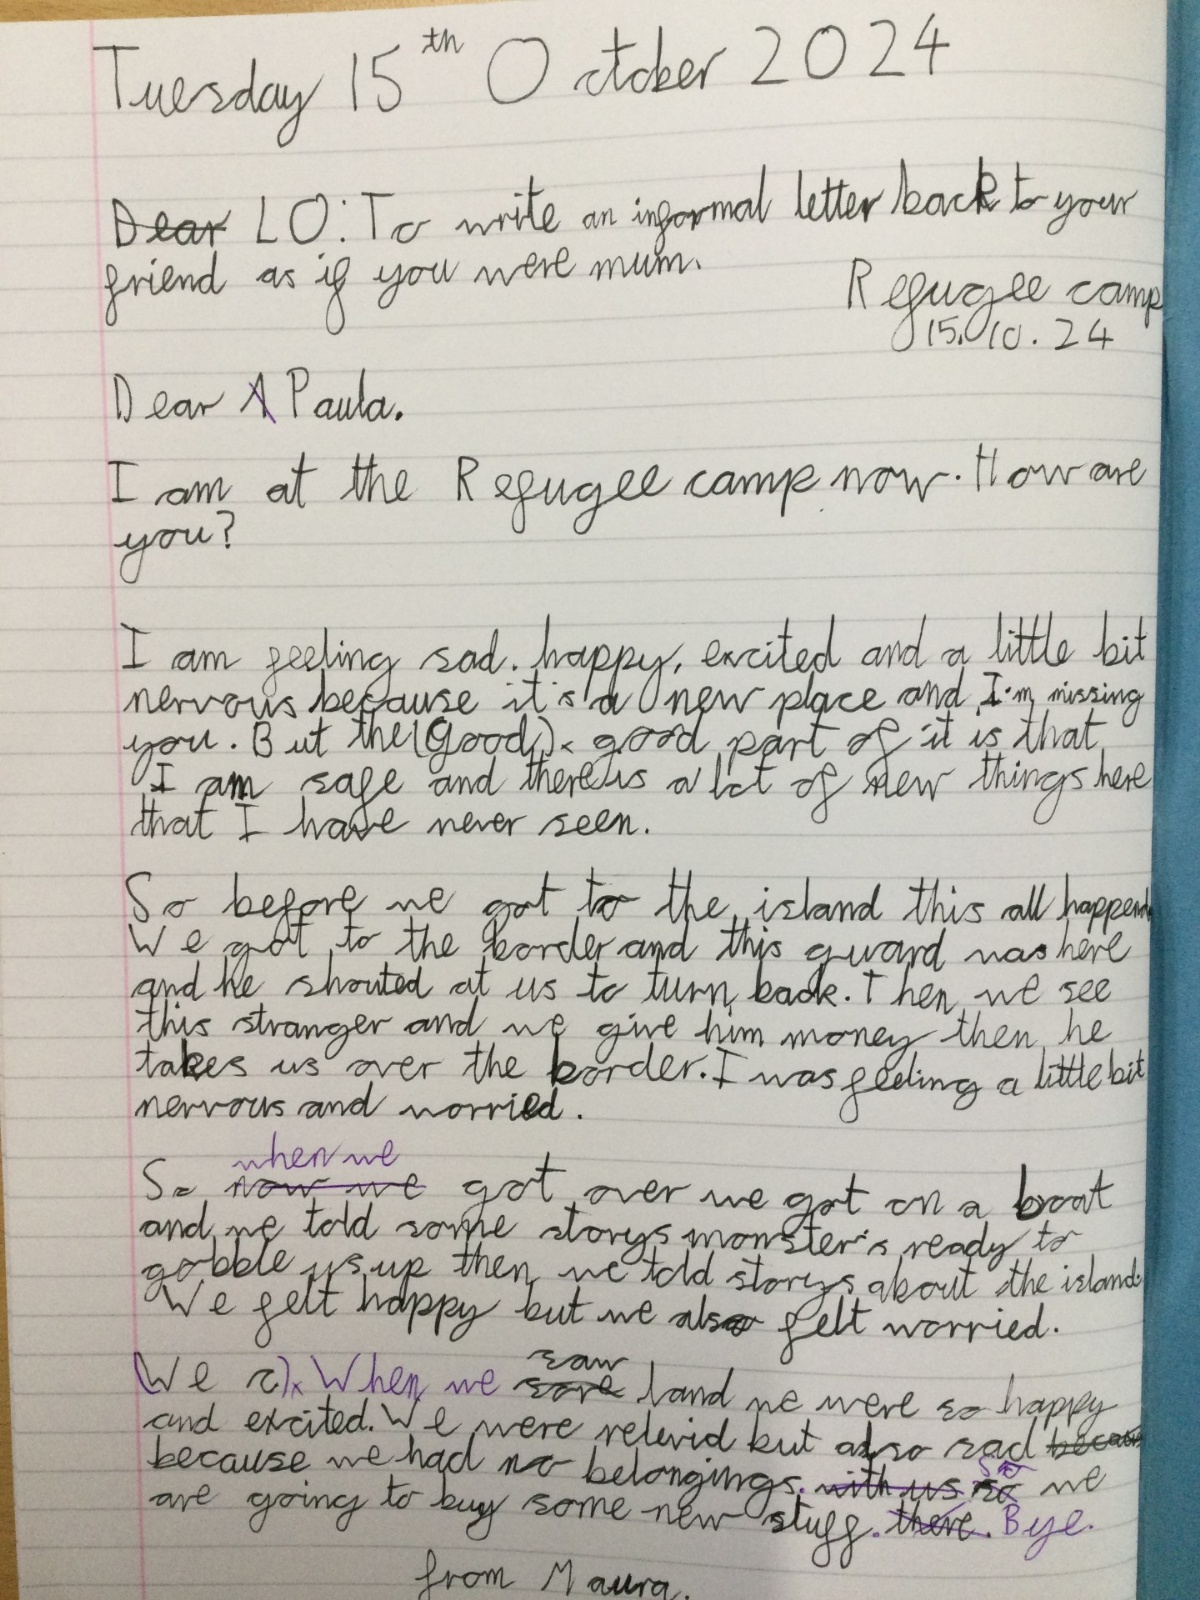 Tuesday 15th October 2024
Dear LO: To write an informal letter back to your
friend as if you were mum.
Refugee camp
15.10.24
Dear A Paula.
I am at the Refugee camp now. How are
you?
I am feeling sad. happy, excited and a little bit
nervous because it's a new place and I'm missing
you. But the (good) x good part of it is that
I am safe and there is a lot of new things here
that I have never seen.
So before we got to the island this all happend
We got to the border and this guard was here
and he shouted at us to turn back. Then we see
this stranger and we give him money then he
takes us over the border. I was feeling a little bit
nervous and worried.
when we
So now we got over we got on a boat
and we told some storys monster's ready to
gobble us up then we told storys about the island.
We felt happy but we also felt worried.
saw
(We c)x When we sore land we were so happy
and excited. We were relevid but also sad becaus
because we had no belongings. with us so So we
are going to buy some new stuff. there. Bye.
from Maura.